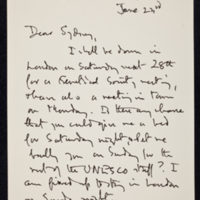 June 23rd
Dear Sydney,
I shall be down in
London on Saturday next 28th
for a Society meeting,
& have also a meeting in town
on Monday. Is there any chance
that you could give me a bed
for Saturday night, & let me
bully you on Sunday for the
rest of the UNESCO stuff? I
am fixed up to stay in London
on Sunday night